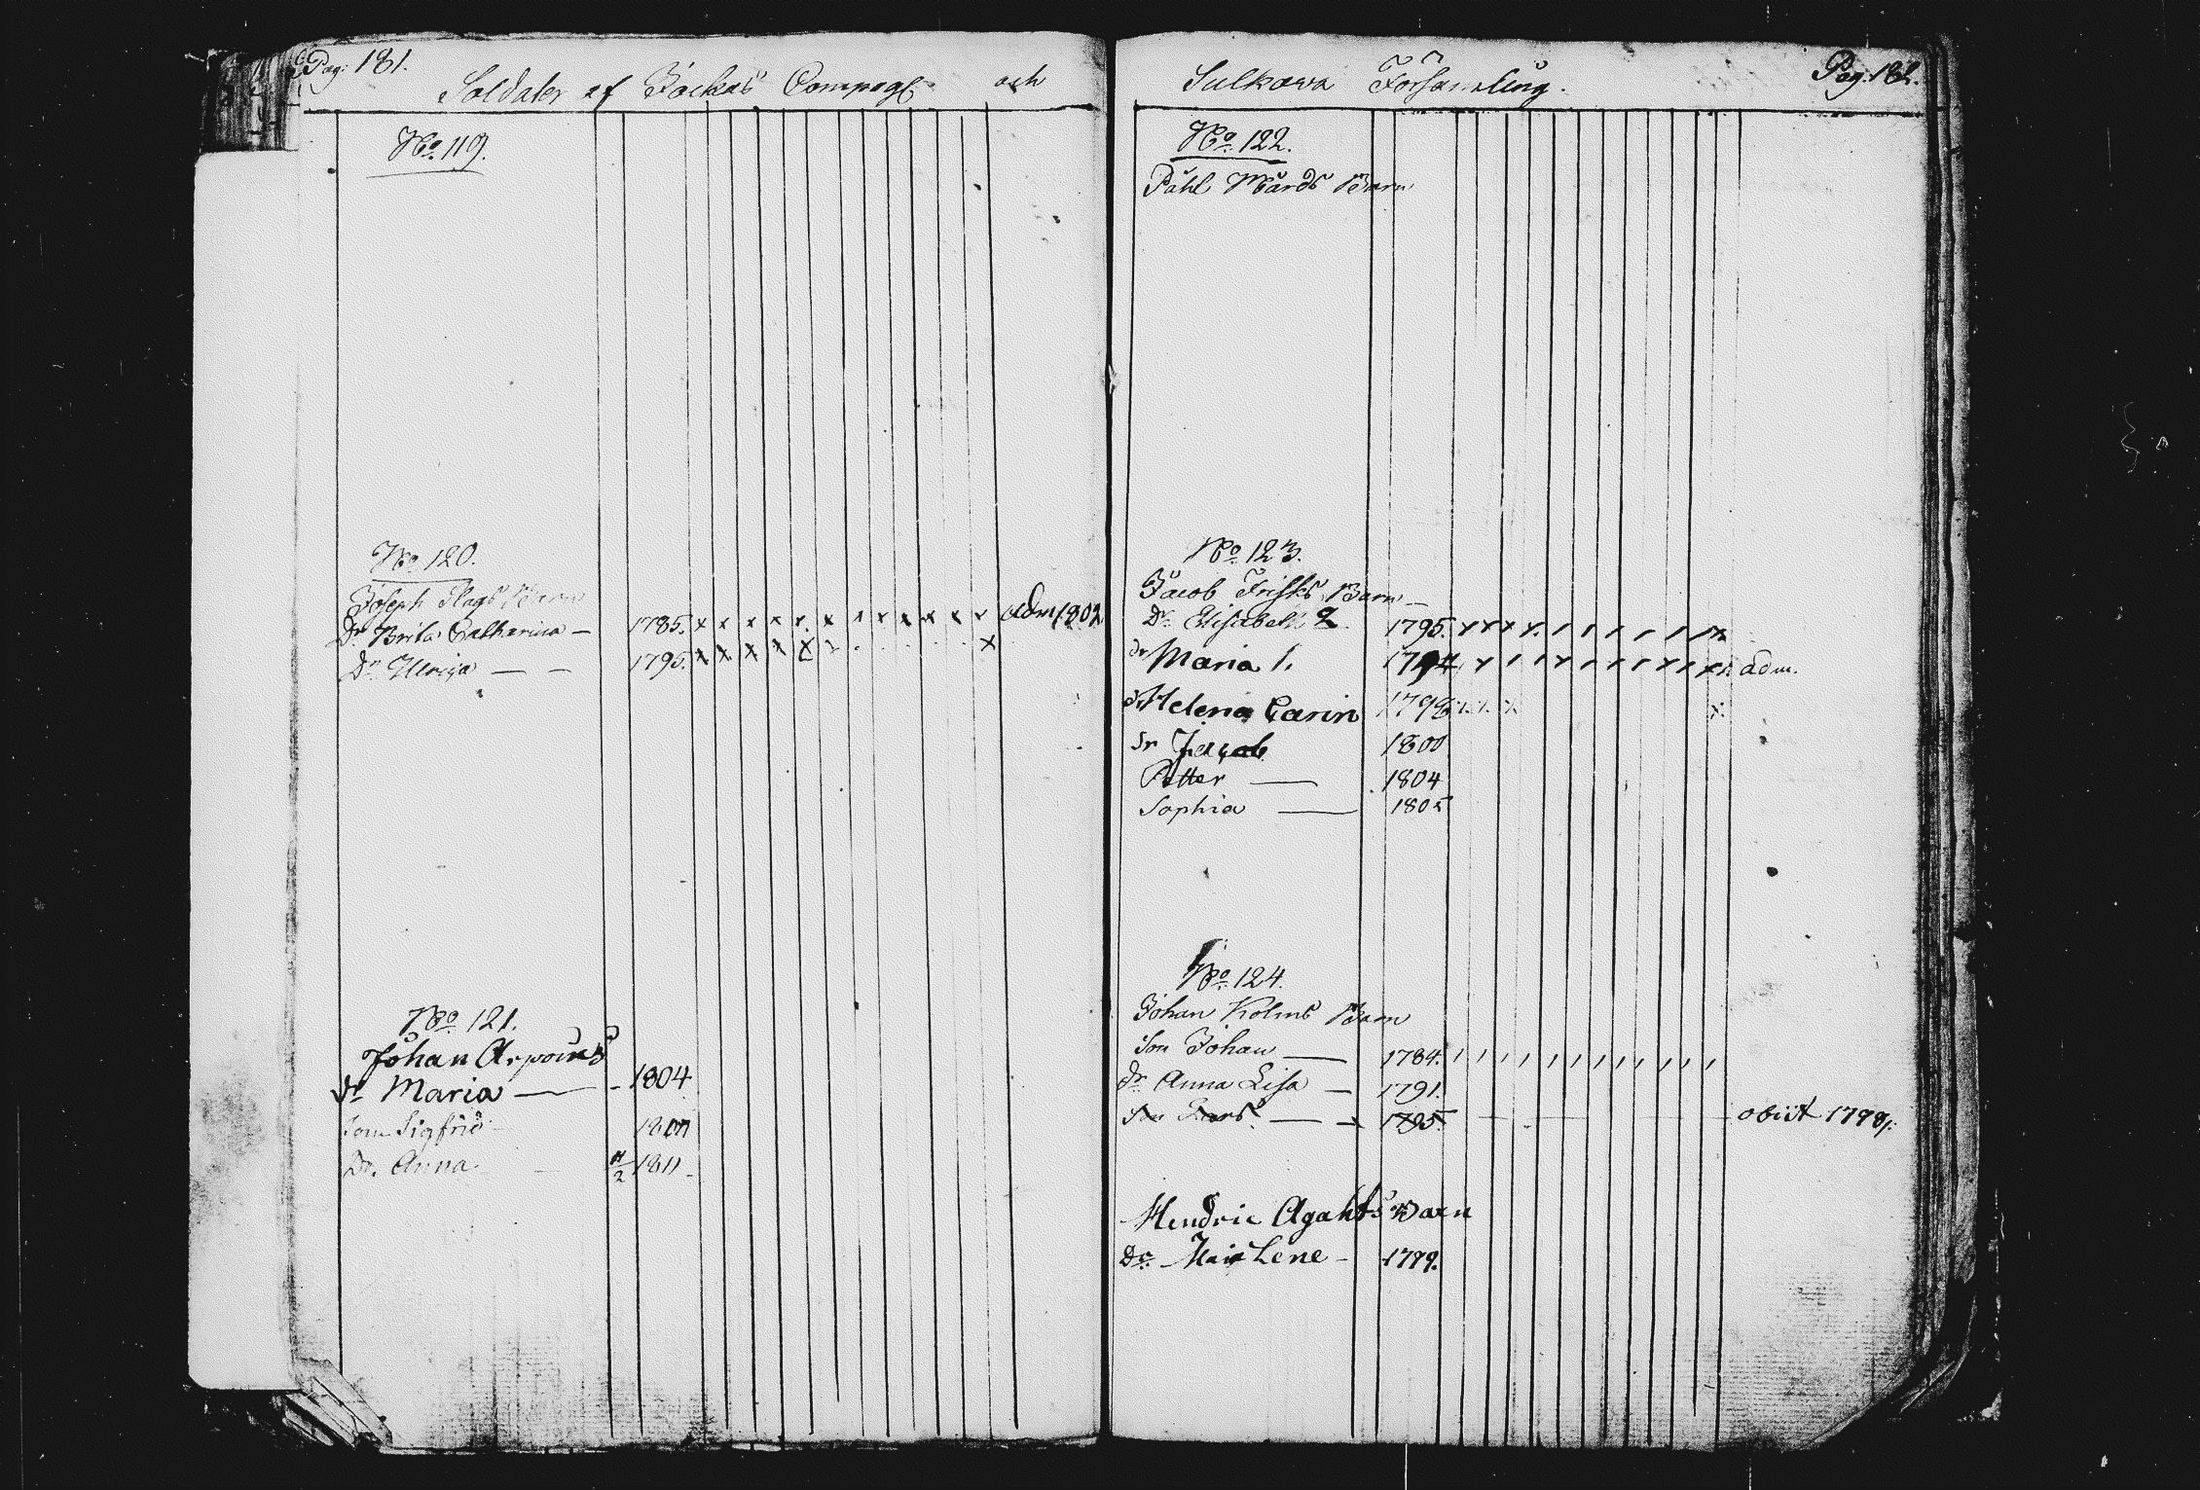 Pag: 181.
Soldater af Jockas Compagn: och
No. 119.
No. 120.
Joseph Flags Barn
Dr. Brita Catharina — 1785. x x x x x x x x x x x x adm 1802
Dr. Ulrica — — 1795. x x x x x x
No. 121.
Johan Arpoins
Dr. Maria — 1804
Son Sigfrid 1807
Dr. Anna 11/2 1811
Pag: 182.
Sulkawa Församling.
No. 122.
Påhl Mårds Barn
No. 123.
Jacob Frisks Barn
Dr. Elisabeth 2. 1795.
dr Maria 1. 1794 adm.
dr Helena Carin 1798
Sr Jacob 1800
Petter — 1804
Sophia — 1805
No. 124.
Johan Holms Barn
Son Johan — 1784.
Dr. Anna Lisa — 1791.
Son Lars — 1795. obiit 1798.
Hendric Agahts Barn
Dr. Maja Lene — 1799.